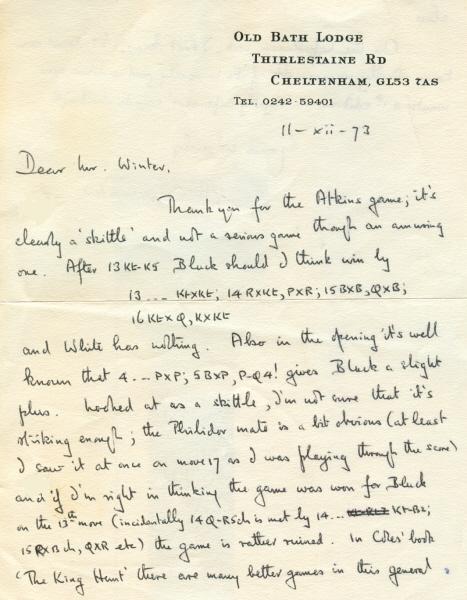 OLD BATH LODGE
THIRLESTAINE RD
CHELTENHAM, GL53 7AS
TEL. 0242-59401
11-xii-73
Dear Mr. Winter,
Thank you for the Atkins game; it's
clearly a 'skittle' and not a serious game though an amusing
one. After 13 Kt-K5 Black should I think win by
13 ... KtxKt; 14 RxKt, PxR; 15 BxB, QxB;
16 KtxQ, KxKt
and White has nothing. Also in the opening it's well
known that 4 ... PxP; 5 BxP, P-Q4! gives Black a slight
plus. Looked at as a skittle, I'm not sure that it's
striking enough; the Philidor mate is a bit obvious (at least
I saw it at once on move 17 as I was playing through the score)
and if I'm right in thinking the game was won for Black
on the 13th move (incidentally 14 Q-R5ch is met by 14 ... Kt-B2;
15 RxB ch, QxR etc) the game is rather ruined. In Coles' book
'The King Hunt' there are many better games in this general